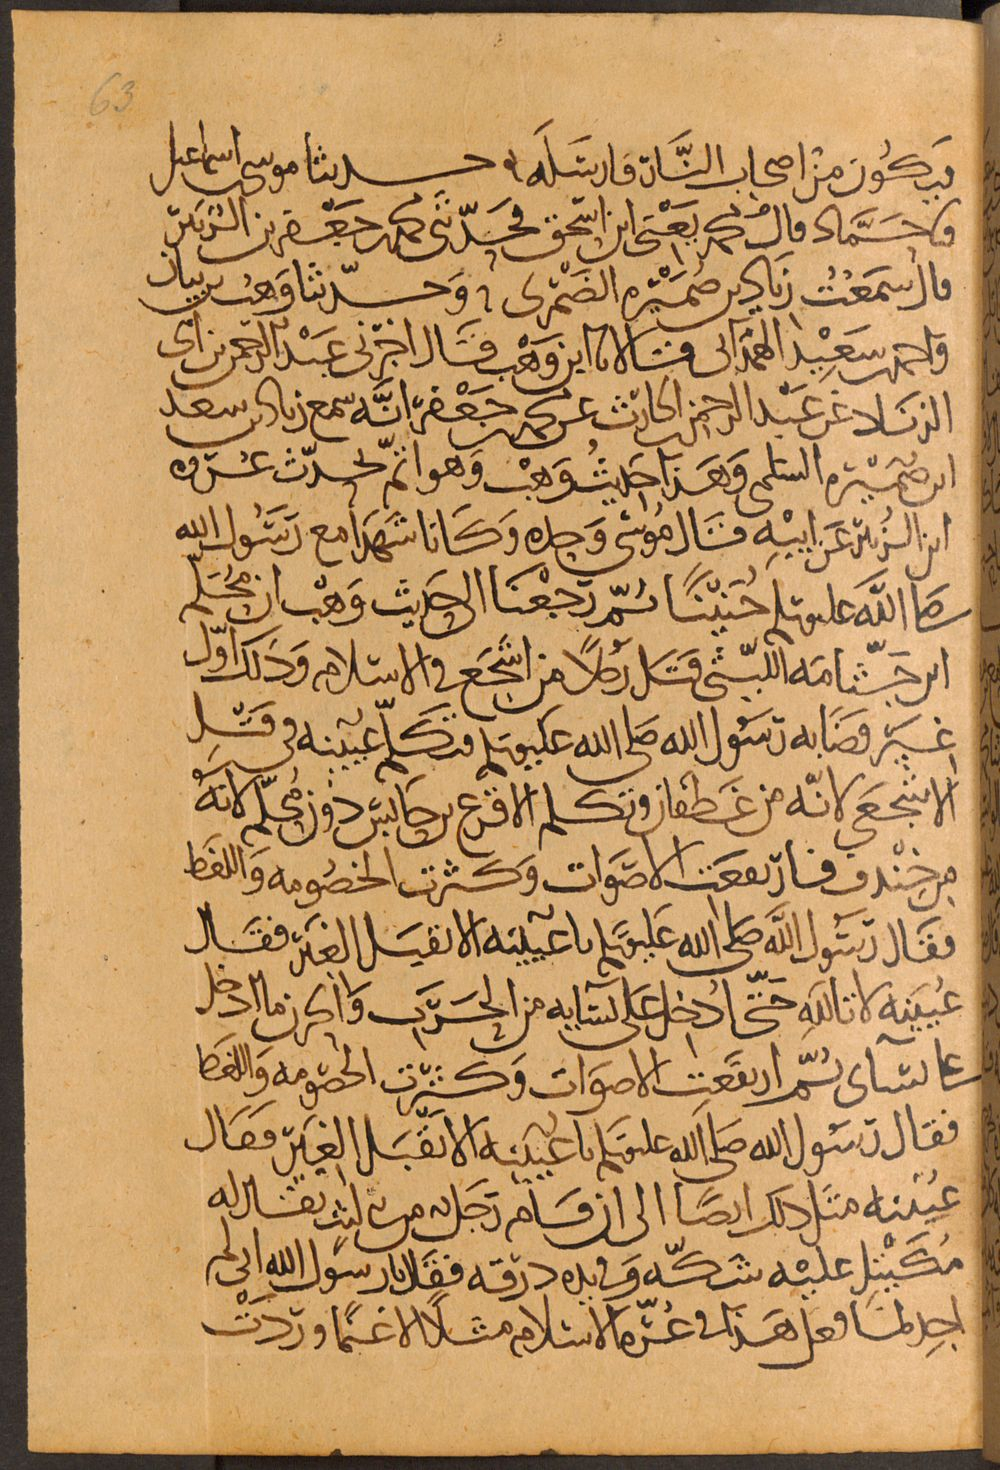 63
فيكون من اصحاب النار فارسله حدثنا موسى بن اسماعيل
نا حماد قال نا محمد يعني ابن اسحق فحدثني محمد بن جعفر بن الزبير
قال سمعت زياد بن ضميرة الضمري وحدثنا وهب بن بيان
واحمد بن سعيد الهمداني قالا نا ابن وهب قال اخبرني عبد الرحمن بن ابي
الزناد عن عبد الرحمن بن الحارث عن محمد بن جعفر انه سمع زياد بن سعد
ابن ضميرة السلمي وهذا حديث وهب وهو اتم يحدث عروة
ابن الزبير عن ابيه قال موسى وجده وكانا شهدا مع رسول الله
صلى الله عليه وسلم حنينا ثم رجعنا الى حديث وهب ان محلم
ابن جثامة الليثي قتل رجلا من اشجع في الاسلام وذلك اول
غير قضى به رسول الله صلى الله عليه وسلم فتكلم عيينه في قتل
الاشجعي لانه من غطفان وتكلم الاقرع بن حابس دون محلم لانه
من خندف فارتفعت الاصوات وكثرت الخصومه واللغط
فقال رسول الله صلى الله عليه وسلم يا عيينه الا تقبل الغير فقال
عيينه لا والله حتى ادخل على نسايه من الحرب والحزن ما ادخل
على نساي ثم ارتفعت الاصوات وكثرت الخصومه واللغط
فقال رسول الله صلى الله عليه وسلم يا عيينه الا تقبل الغير فقال
عيينه مثل ذلك ايضا الى ان قام رجل من بني ليث يقال له
مكيتل عليه شكه وفي يده درقه فقال يا رسول الله اني لم
اجد لما فعل هذا في غرة الاسلام مثلا الا غنما وردت